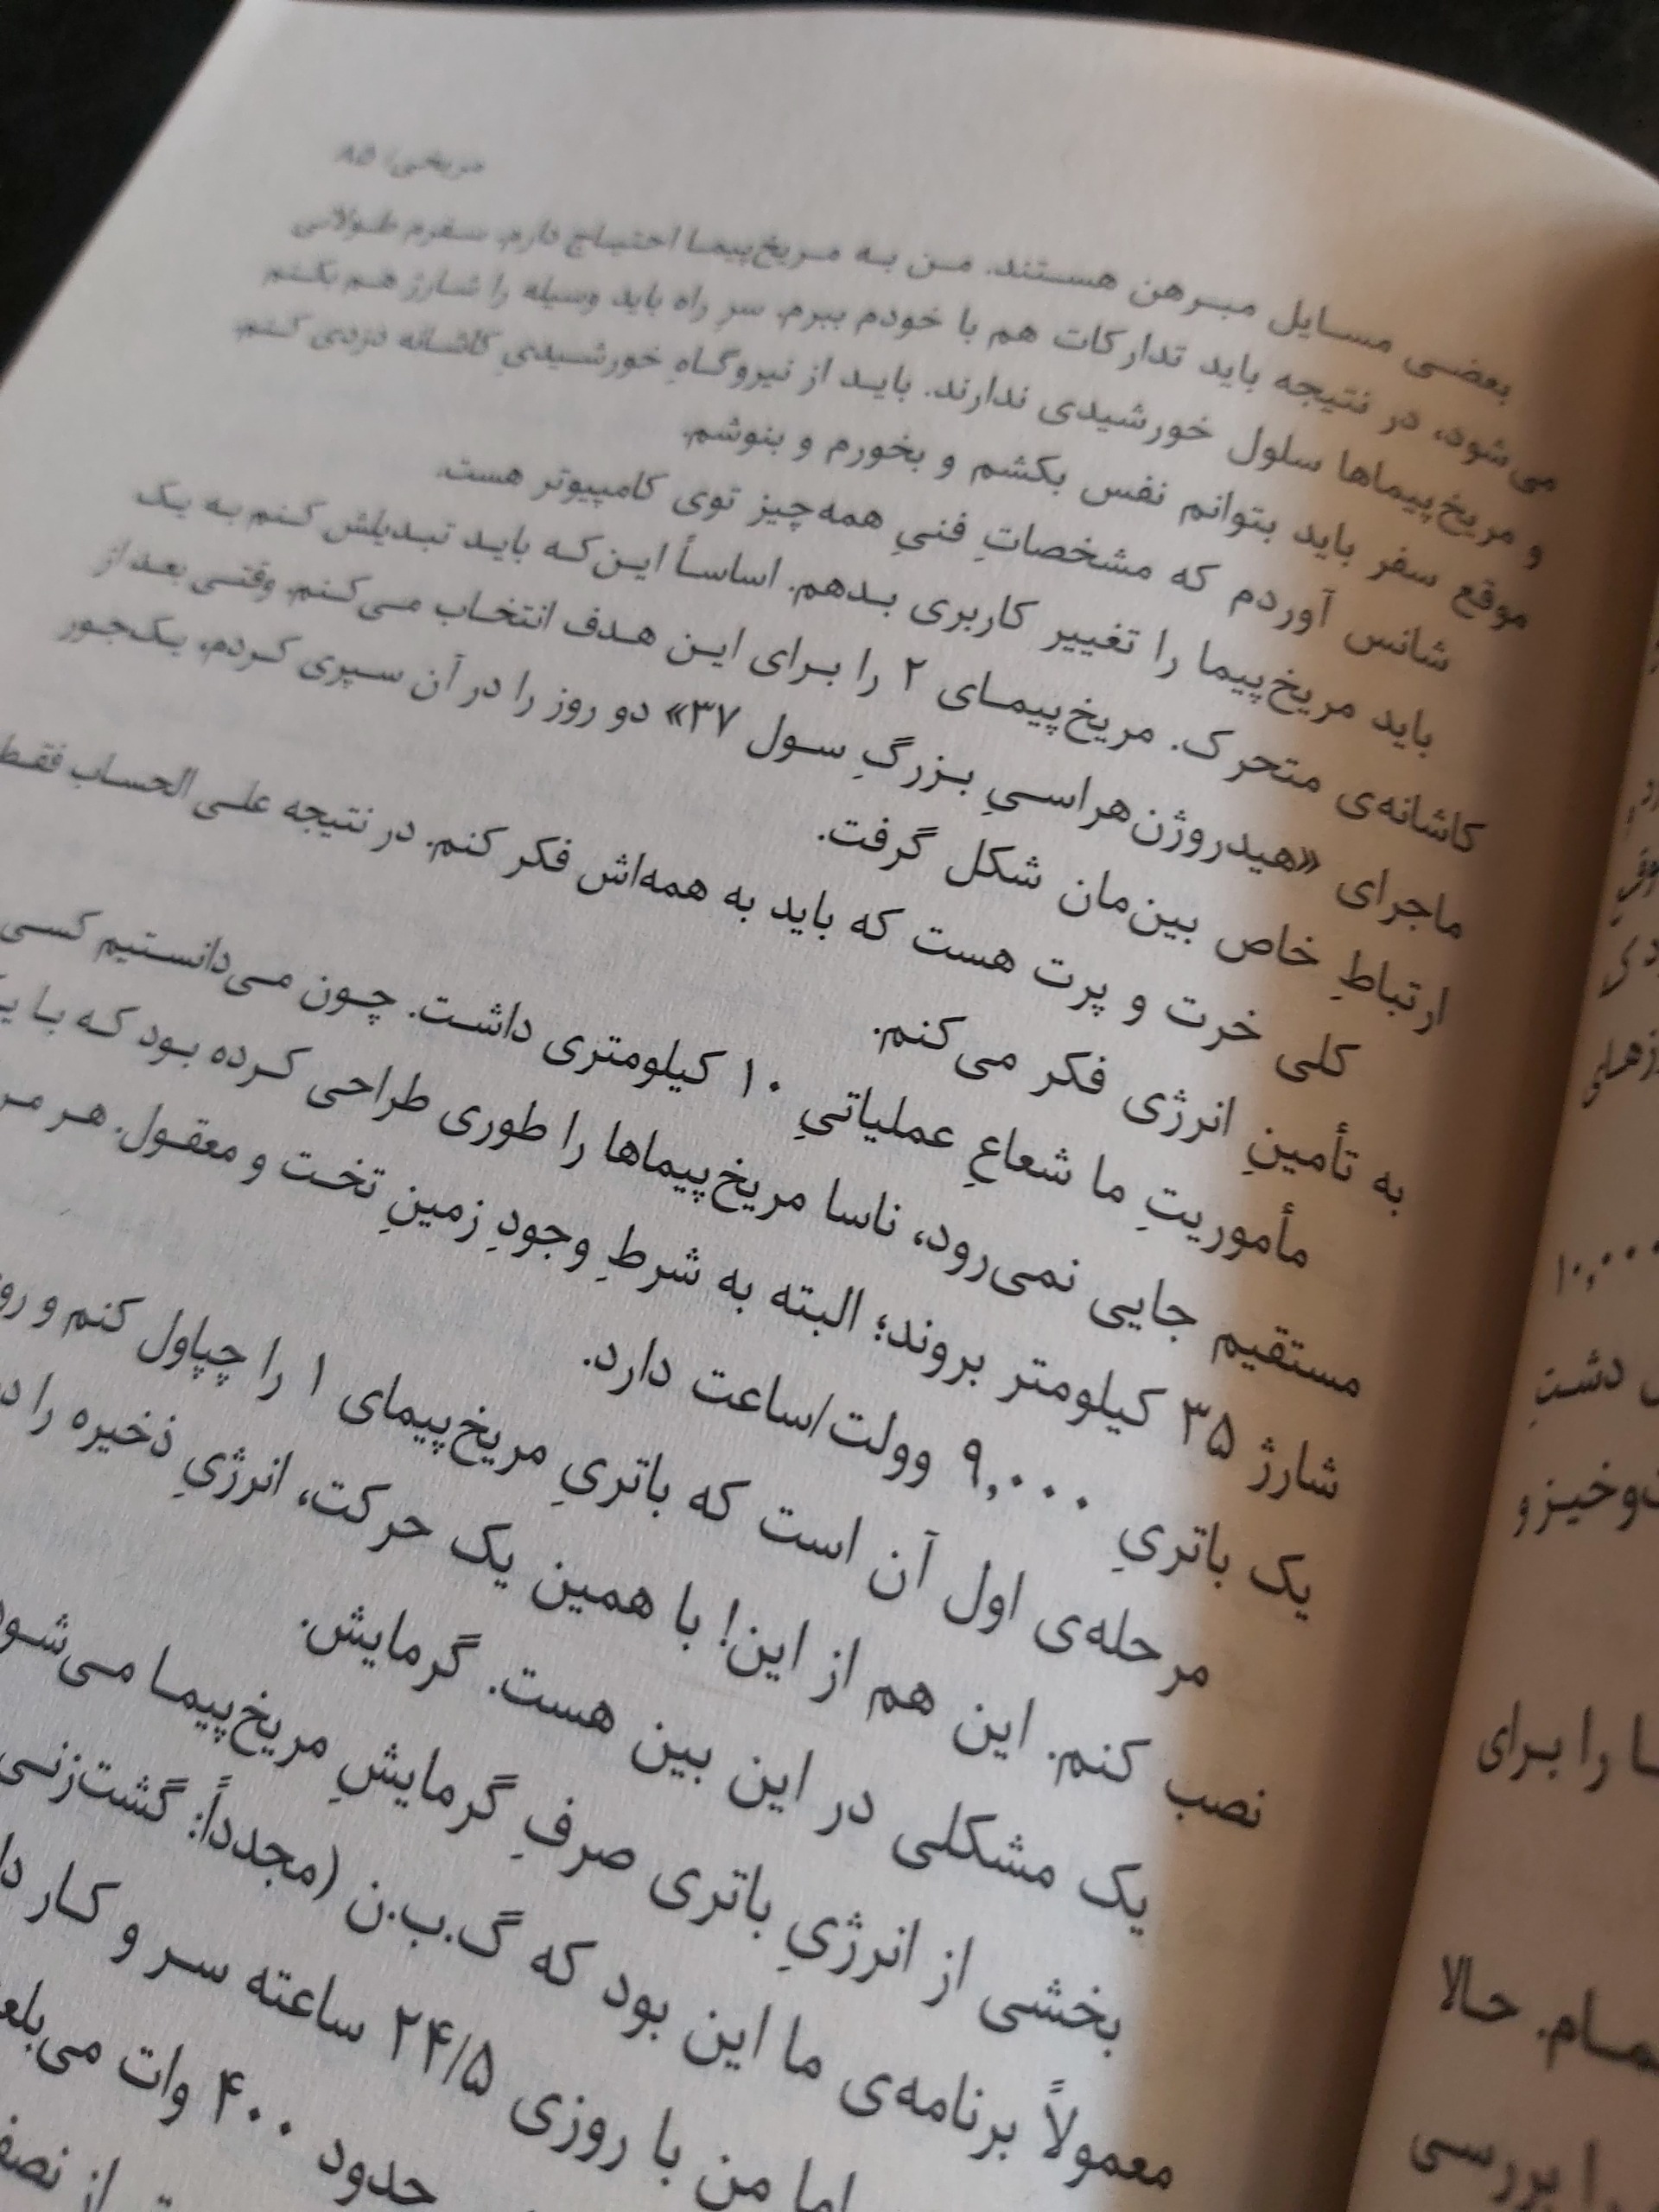 مریخی/ ۸۵
بعضی مسایل مبرهن هستند. من به مریخ‌پیما احتیاج دارم. سفرم طولانی
می‌شود، در نتیجه باید تدارکات هم با خودم ببرم. سرِ راه باید وسیله را شارژ هم بکنم
و مریخ‌پیماها سلول خورشیدی ندارند. باید از نیروگاهِ خورشیدیِ کاشانه دزدی کنم.
موقع سفر باید بتوانم نفس بکشم و بخورم و بنوشم.
شانس آوردم که مشخصاتِ فنیِ همه‌چیز توی کامپیوتر هست.
باید مریخ‌پیما را تغییر کاربری بدهم. اساساً این‌که باید تبدیلش کنم به یک
کاشانه‌ی متحرک. مریخ‌پیمای ۲ را برای این هدف انتخاب می‌کنم. وقتی بعد از
ماجرای «هیدروژن‌هراسیِ بزرگِ سول ۳۷» دو روز را در آن سپری کردم، یک‌جور
ارتباطِ خاص بین‌مان شکل گرفت.
کلی خرت و پرت هست که باید به همه‌اش فکر کنم. در نتیجه علی الحساب فقط
به تأمینِ انرژی فکر می‌کنم.
مأموریتِ ما شعاعِ عملیاتیِ ۱۰ کیلومتری داشت. چون می‌دانستیم کسی
مستقیم جایی نمی‌رود، ناسا مریخ‌پیماها را طوری طراحی کرده بود که با
شارژ ۳۵ کیلومتر بروند؛ البته به شرطِ وجودِ زمینِ تخت و معقول. هر
یک باتریِ ۹,۰۰۰ وولت/ساعت دارد.
مرحله‌ی اول آن است که باتریِ مریخ‌پیمای ۱ را چپاول کنم و
نصب کنم. این هم از این! با همین یک حرکت، انرژیِ ذخیره را
یک مشکلی در این بین هست. گرمایش.
بخشی از انرژیِ باتری صرفِ گرمایشِ مریخ‌پیما می‌شود
معمولاً برنامه‌ی ما این بود که گ.ب.ن (مجدداً: گشت‌زنی
اما من با روزی ۲۴/۵ ساعته سر و کار
حدود ۴۰۰ وات
از
۱۰,۰۰۰
دشتِ
را برای
حالا
بررسی